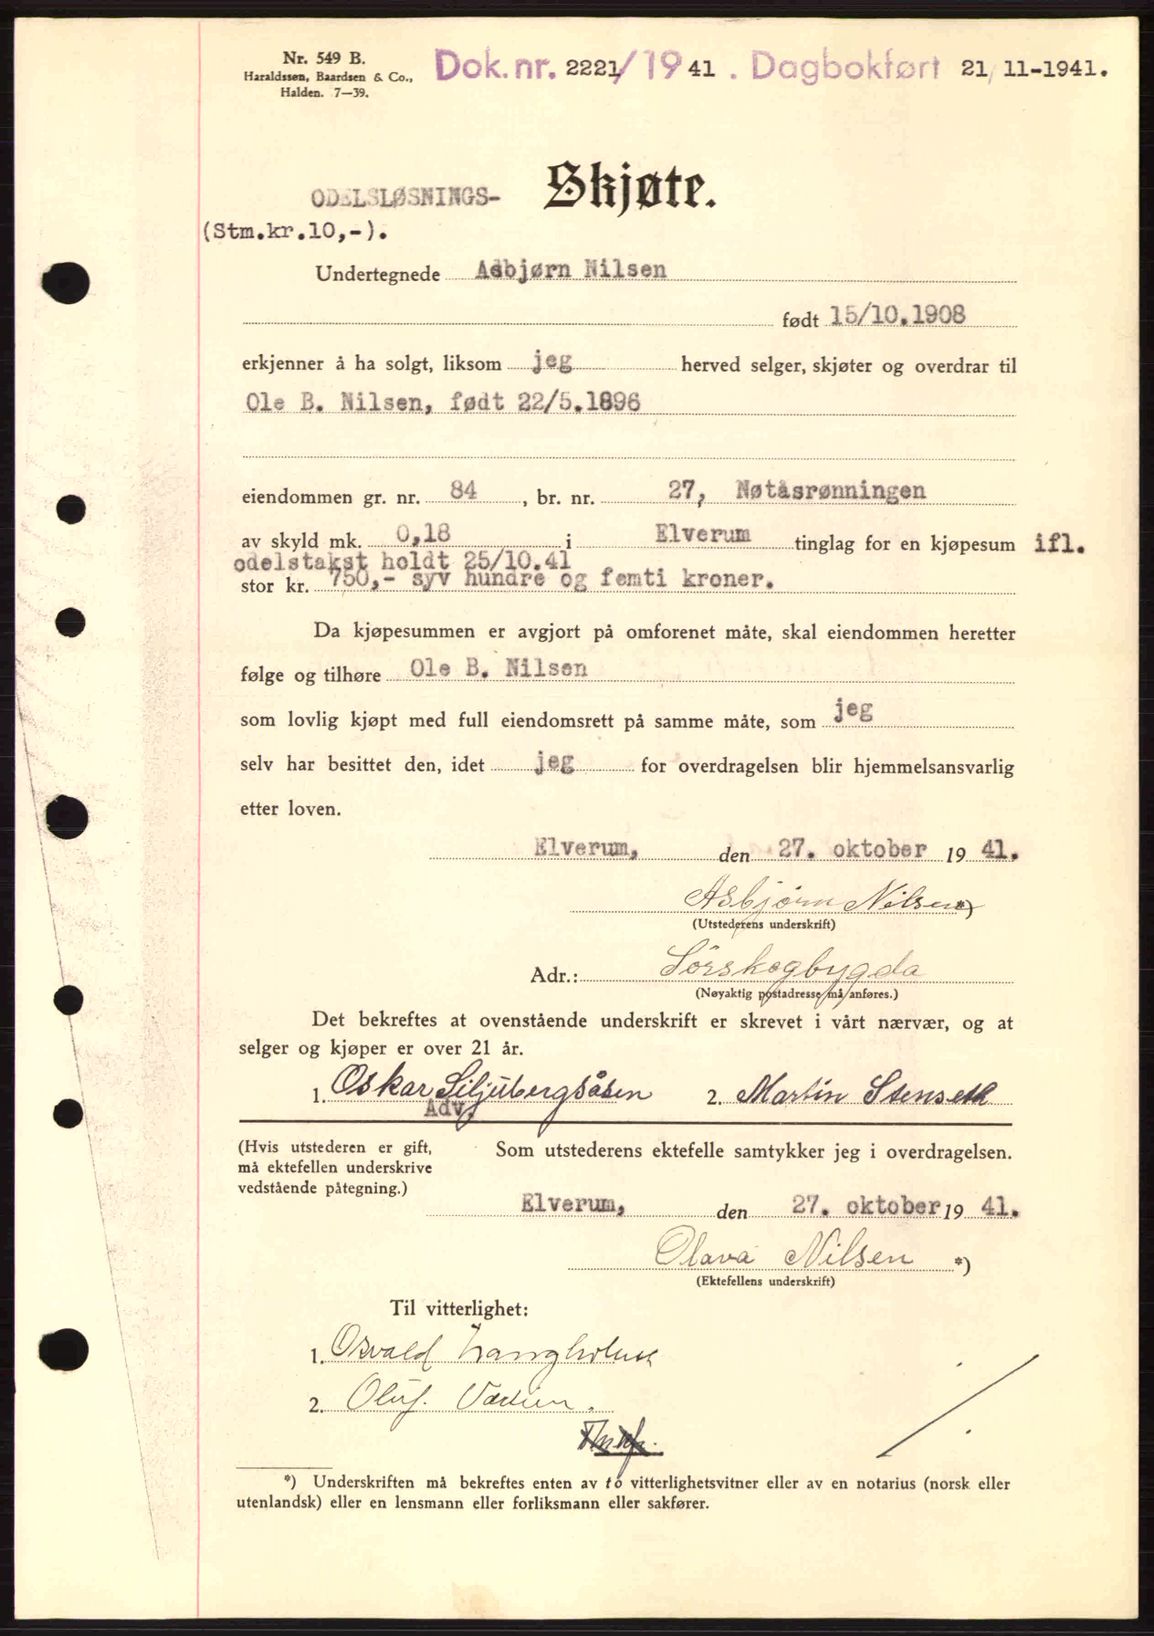 Nr. 549 B.
Haraldssen, Baardsen & Co.,
Halden. 7—39.
Dok. nr. 2221/1941. Dagbokført 21/11-1941.
ODELSLØSNINGS- Skjøte.
(Stm.kr.10,-).
Undertegnede Asbjørn Nilsen
født 15/10.1908
erkjenner å ha solgt, liksom jeg herved selger, skjøter og overdrar til
Ole B. Nilsen, født 22/5.1896
eiendommen gr. nr. 84, br. nr. 27, Nøtåsrønningen
av skyld mk. 0,18 i Elverum tinglag for en kjøpesum ifl.
odelstakst holdt 25/10.41
stor kr. 750,- syv hundre og femti kroner.
Da kjøpesummen er avgjort på omforenet måte, skal eiendommen heretter
følge og tilhøre Ole B. Nilsen
som lovlig kjøpt med full eiendomsrett på samme måte, som jeg
selv har besittet den, idet jeg for overdragelsen blir hjemmelsansvarlig
etter loven.
Elverum, den 27. oktober 19 41.
Asbjørn Nilsen *)
(Utstederens underskrift)
Adr.: Sørskogbygda
(Nøyaktig postadresse må anføres.)
Det bekreftes at ovenstående underskrift er skrevet i vårt nærvær, og at
selger og kjøper er over 21 år.
1. Oskar Siljubergsåsen 2. Martin Stenseth
Adv.
(Hvis utstederen er gift, Som utstederens ektefelle samtykker jeg i overdragelsen.
må ektefellen underskrive
vedstående påtegning.)
Elverum, den 27. oktober 19 41.
Olava Nilsen *)
(Ektefellens underskrift)
Til vitterlighet:
1. Osvald Langholust
2. Oluf.
*) Underskriften må bekreftes enten av to vitterlighetsvitner eller av en notarius (norsk eller
utenlandsk) eller en lensmann eller forliksmann eller sakfører.